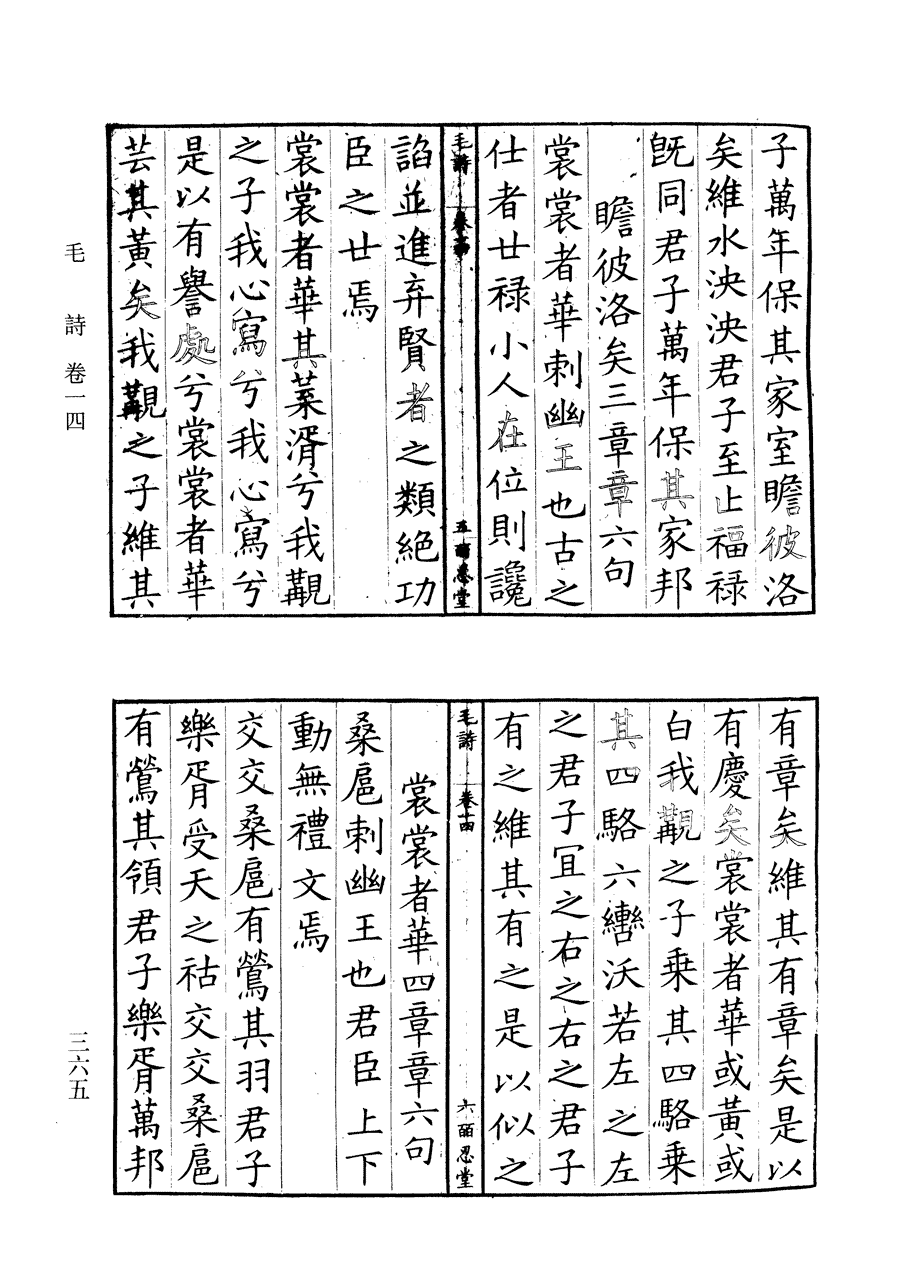 子萬年保其家室瞻彼洛
矣維水泱泱君子至止福禄
旣同君子萬年保其家邦
瞻彼洛矣三章章六句
裳裳者華刺幽王也古之
仕者廿禄小人在位則讒
毛詩 卷十四 五 皕忍堂
諂並進弃賢者之類絶功
臣之廿焉
裳裳者華其葉湑兮我覯
之子我心寫兮我心寫兮
是以有譽處兮裳裳者華
芸其黃矣我覯之子維其
有章矣維其有章矣是以
有慶矣裳裳者華或黃或
白我覯之子乗其四駱乗
其四駱六轡沃若左之左
之君子冝之右之右之君子
有之維其有之是以似之
毛詩 卷十四 六 皕忍堂
裳裳者華四章章六句
桑扈刺幽王也君臣上下
動無禮文焉
交交桑扈有鶯其羽君子
樂胥受天之祜交交桑扈
有鶯其領君子樂胥萬邦
毛詩 卷一四
三六五